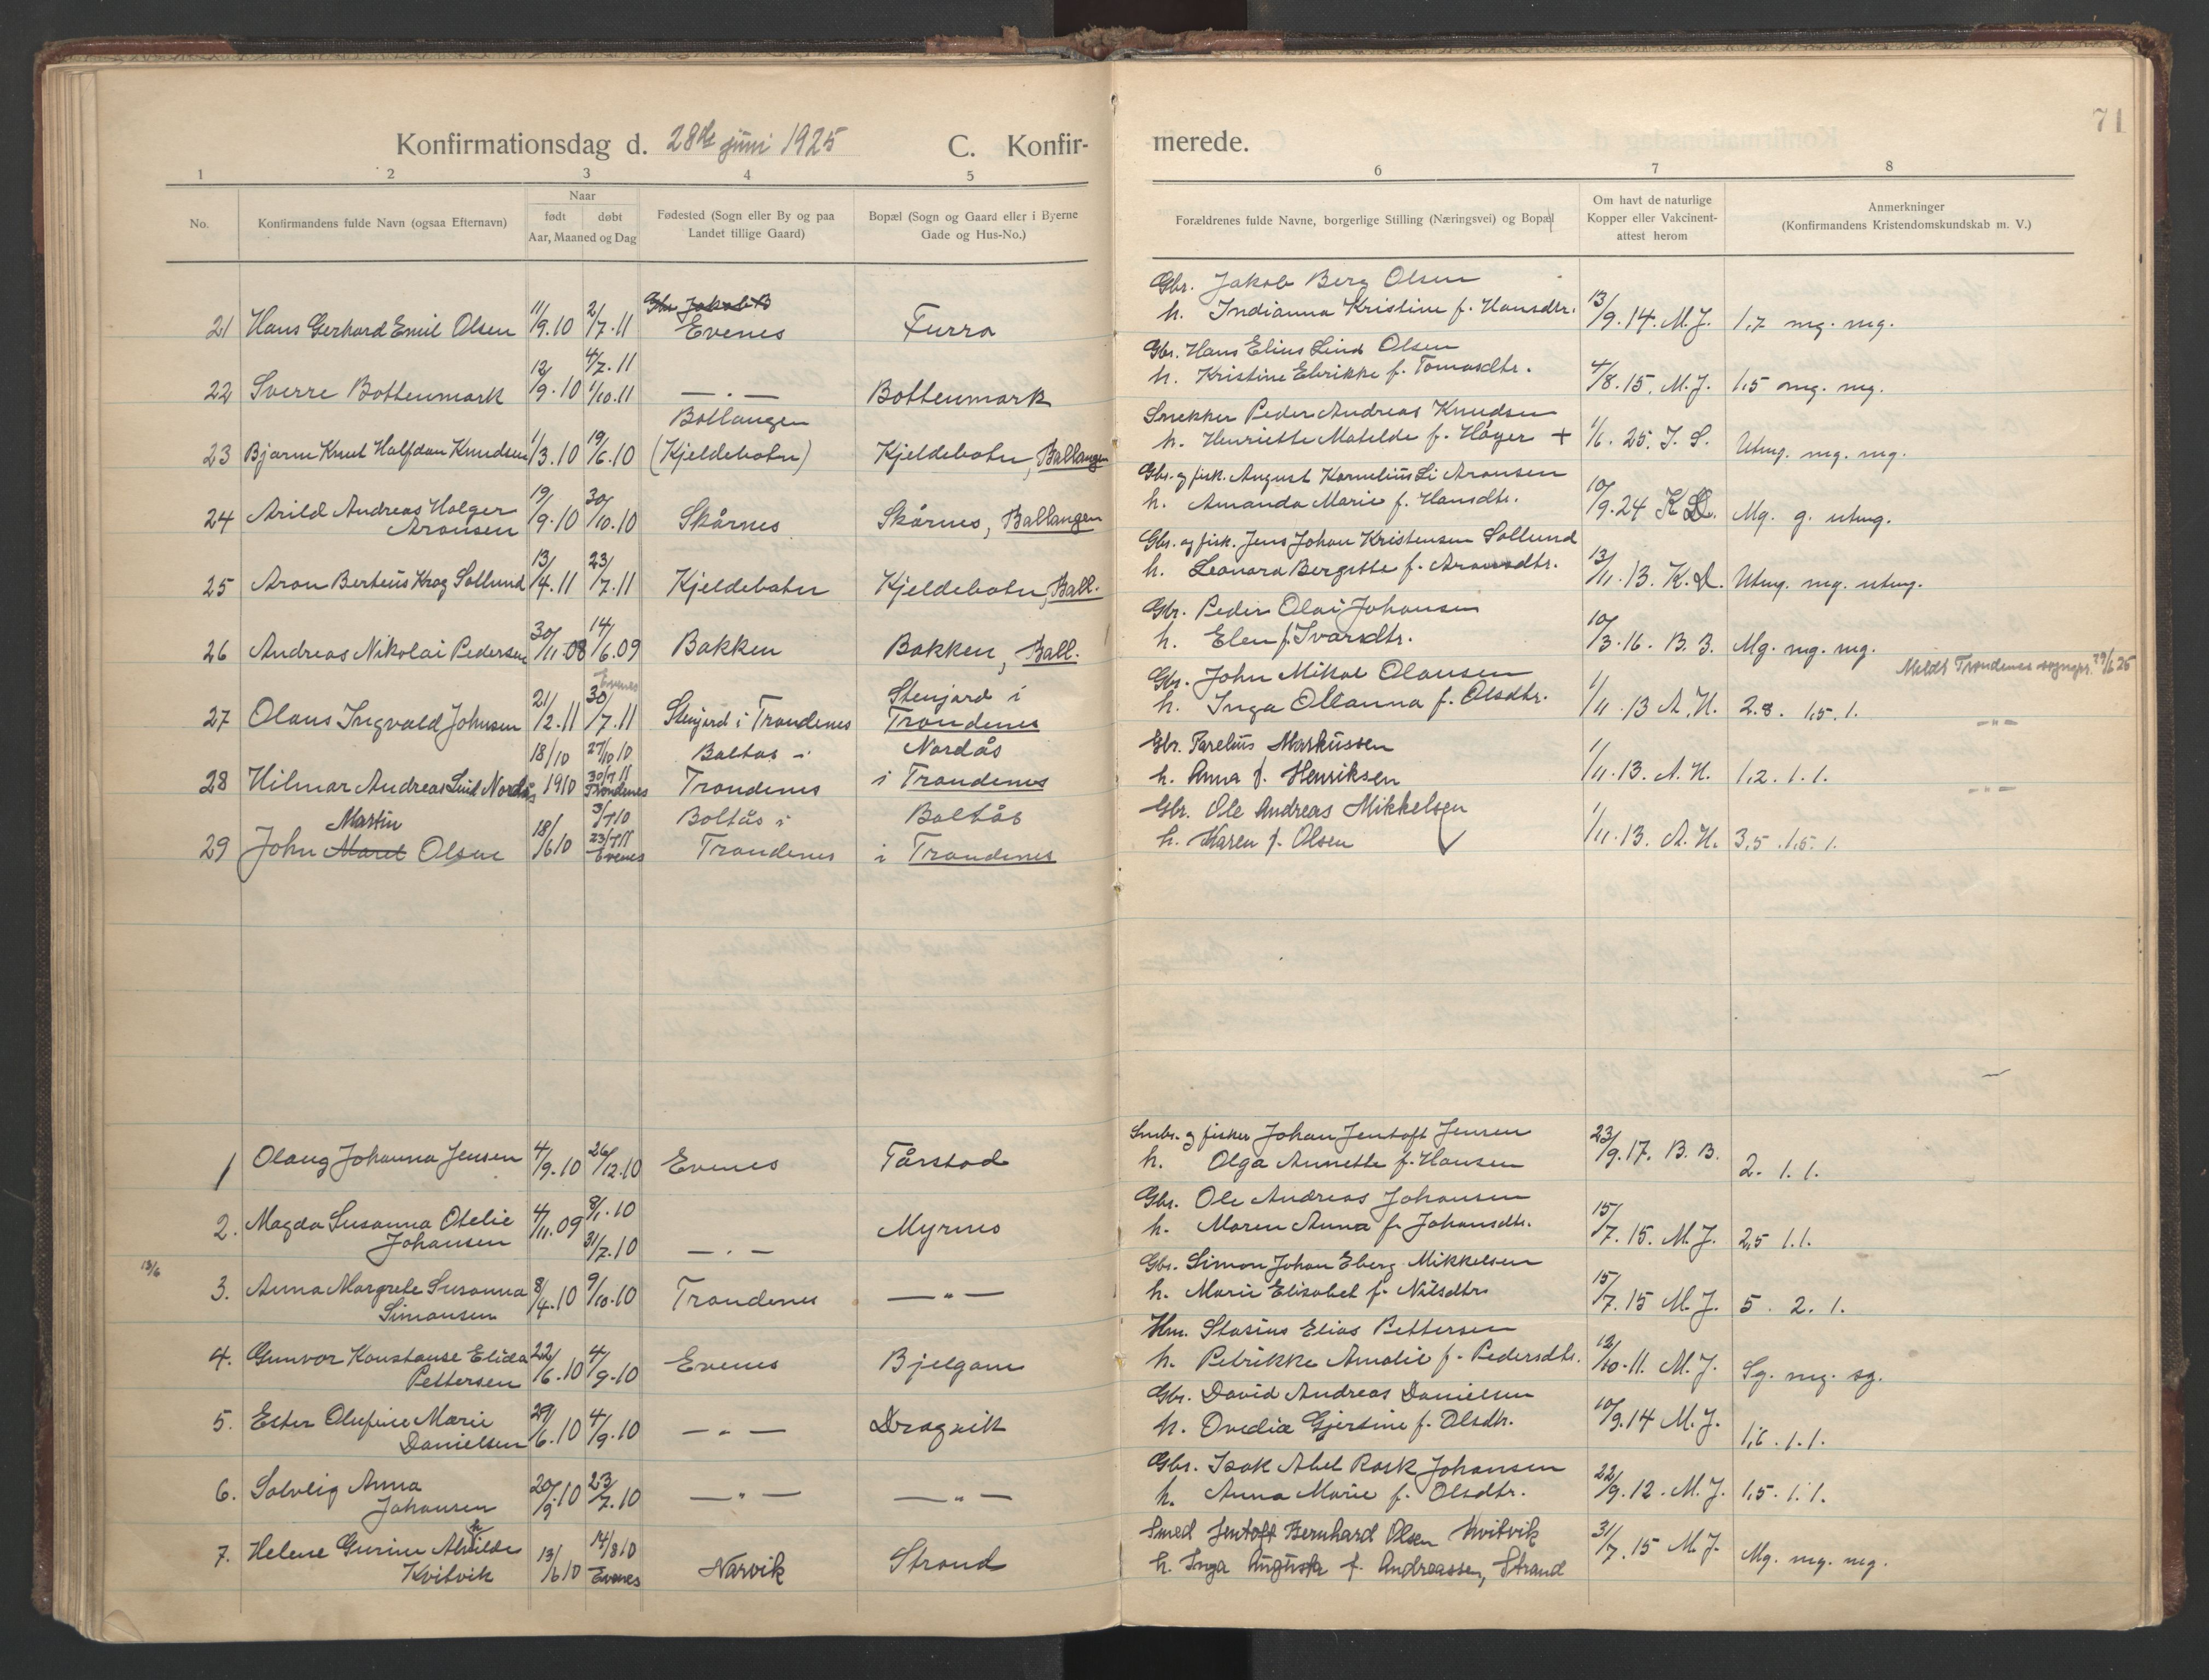 71
Konfirmationsdag d. 28de juni 1925
C. Konfir-
merede.
1 2 3 4 5 6 7 8
No.
Konfirmandens fulde Navn (ogsaa Efternavn)
Naar
født døbt
Aar, Maaned og Dag
Fødested (Sogn eller By og paa
Landet tillige Gaard)
Bopæl (Sogn og Gaard eller i Byerne
Gade og Hus-No.)
Forældrenes fulde Navne, borgerlige Stilling (Næringsvei) og Bopæl
Om havt de naturlige
Kopper eller Vakcinent-
attest herom
Anmerkninger
(Konfirmandens Kristendomskundskab m. V.)
Gbr. Jakob B
21 Hans Gerhard Emil Olsen 11/9.10 2/7.11 Evenes Furra
Gbr. Jakob Berg Olsen
h. Indianna Kristine f. Hansdtr. 13/9.14. M.J. 1,7 mg. mg.
4/7.11
22 Sverre Bottenmark 12/9.10 1/10.11 — . — Bottenmark
Gbr. Hans Elius Lind Olsen
h. Kristine Elrikke f. Tomasdtr. 4/8.15. M.J. 1,5 mg. mg.
Ballangen
23 Bjarne Knut Halfdan Knudsen 1/3.10 19/6.10 (Kjeldebotn) Kjeldebotn, Ballangen
Snekker Peder Andreas Knudsen
h. Henriette Matelde f. Høyer + 1/6.25. J.S. Utmg. mg. mg.
24 Arild Andreas Holger
Aronsen 19/9.10 30/10.10 Skårnes Skårnes, Ballangen
Gbr. og fisk. August Kornelius Li Aronsen
h. Amanda Marie f. Hansdtr. 10/9.24 K.D. Mg. g. utmg.
25 Aron Berteus Krog Sollund 13/4.11 23/7.11 Kjeldebotn Kjeldebotn, Ball.
Gbr. og fisk. Jens Johan Kristensen Sollund
h. Leonora Bergitte f. Aronsdtr. 13/11.13. K.D. Utmg. mg. utmg.
26 Andreas Nikolai Pedersen 30/11.08 14/6.09 Bakken Bakken, Ball.
Gbr. Peder Olai Johansen
h. Elen f. Ivarsdtr. 10/3.16. B.B. Mg. mg. mg.
Meldt Trondenes sognepr. 29/6 25
Evenes
27 Olaus Ingvald Johnsen 21/2.11 30/7.11 Stenjord i Trondenes Stenjord i
Trondenes
Gbr. John Mikal Olausen
h. Inga Oltanna f. Olsdtr. 1/11.13 A.H. 2.8. 1,5. 1.
28 Hilmar Andreas Lind Nordås 18/10 1910 27/10 10 30/7 11 Trondenes
Boltås i
Trondenes Nordås
i Trondenes
Gbr. Parelius Markussen
h. Anna f. Henriksen 1/11.13. A.H. 1,2. 1. 1. — " —
Martin
29 John Maret Olsen 18/6 10 3/7 10 23/7 11 Evenes
Boltås i
Trondenes Boltås
i Trondenes
Gbr. Ole Andreas Mikkelsen
h. Karen f. Olsen 1/11.13. A.H. 3,5. 1,5. 1. — " —
1 Olaug Johanna Jensen 4/9.10 26/12.10 Evenes Tårstad
Smbr. og fisker Johan Jentoft Jensen
h. Olga Annette f. Hansen 23/9.17. B.B. 2. 1. 1.
2. Magda Susanna Otelie
Johansen 4/11.09 8/1.10 31/7.10 — . — Myrnes
Gbr. Ole Andreas Johansen
h. Maren Anna f. Johansdtr. 15/7.15. M.J. 2,5 1.1.
13/6
3. Anna Margrete Susanna
Simonsen 8/4.10 9/10.10 Trondenes — " —
Gbr. Simon Johan Eberg Mikkelsen
h. Marie Elisabet f. Nilsdtr. 15/7.15 M.J. 5. 2. 1.
4. Gunvor Konstanse Elida
Pettersen 22/6.10 4/9.10 Evenes Bjelgam
Hm. Stasius Elias Pettersen
h. Petrikke Amalie f. Pedersdtr. 12/10.11. M.J. Sg. mg. sg.
5. Ester Olufine Marie
Danielsen 29/6.10 4/9.10 — " — Dragvik
Gbr. David Andreas Danielsen
h. Ovedia Gjertine f. Olsdtr. 10/9.14 M.J. 1,6. 1. 1.
6. Solveig Anna
Johansen 20/5.10 23/7.10 — " — — " —
Gbr. Isak Abel Rask Johansen
h. Anna Marie f. Olsdtr. 22/9.12. M.J. 1,5. 1. 1.
7. Helene Gurine Alvilde
Kvitvik 13/6 10 14/8 10 Evenes Narvik Strand
Smed Jentoft Bernhard Olsen Kvitvik
h. Inga Augusta f. Andreassen, Strand 31/7.15 M.J. Mg. mg. mg.